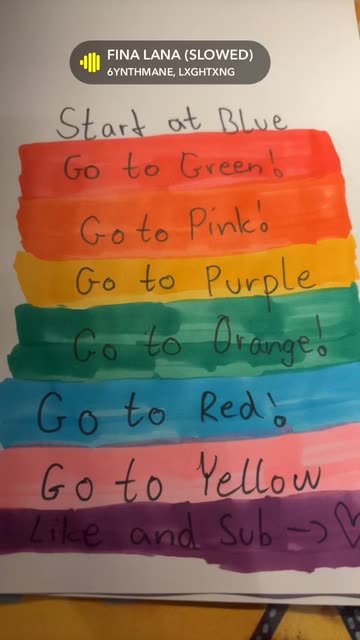 FINA LANA (SLOWED)
6YNTHMANE, LXGHTXNG
Start at Blue
Go to Green!
Go to Pink!
Go to Purple
Go to Orange!
Go to Red!
Go to Yellow
Like and Sub →